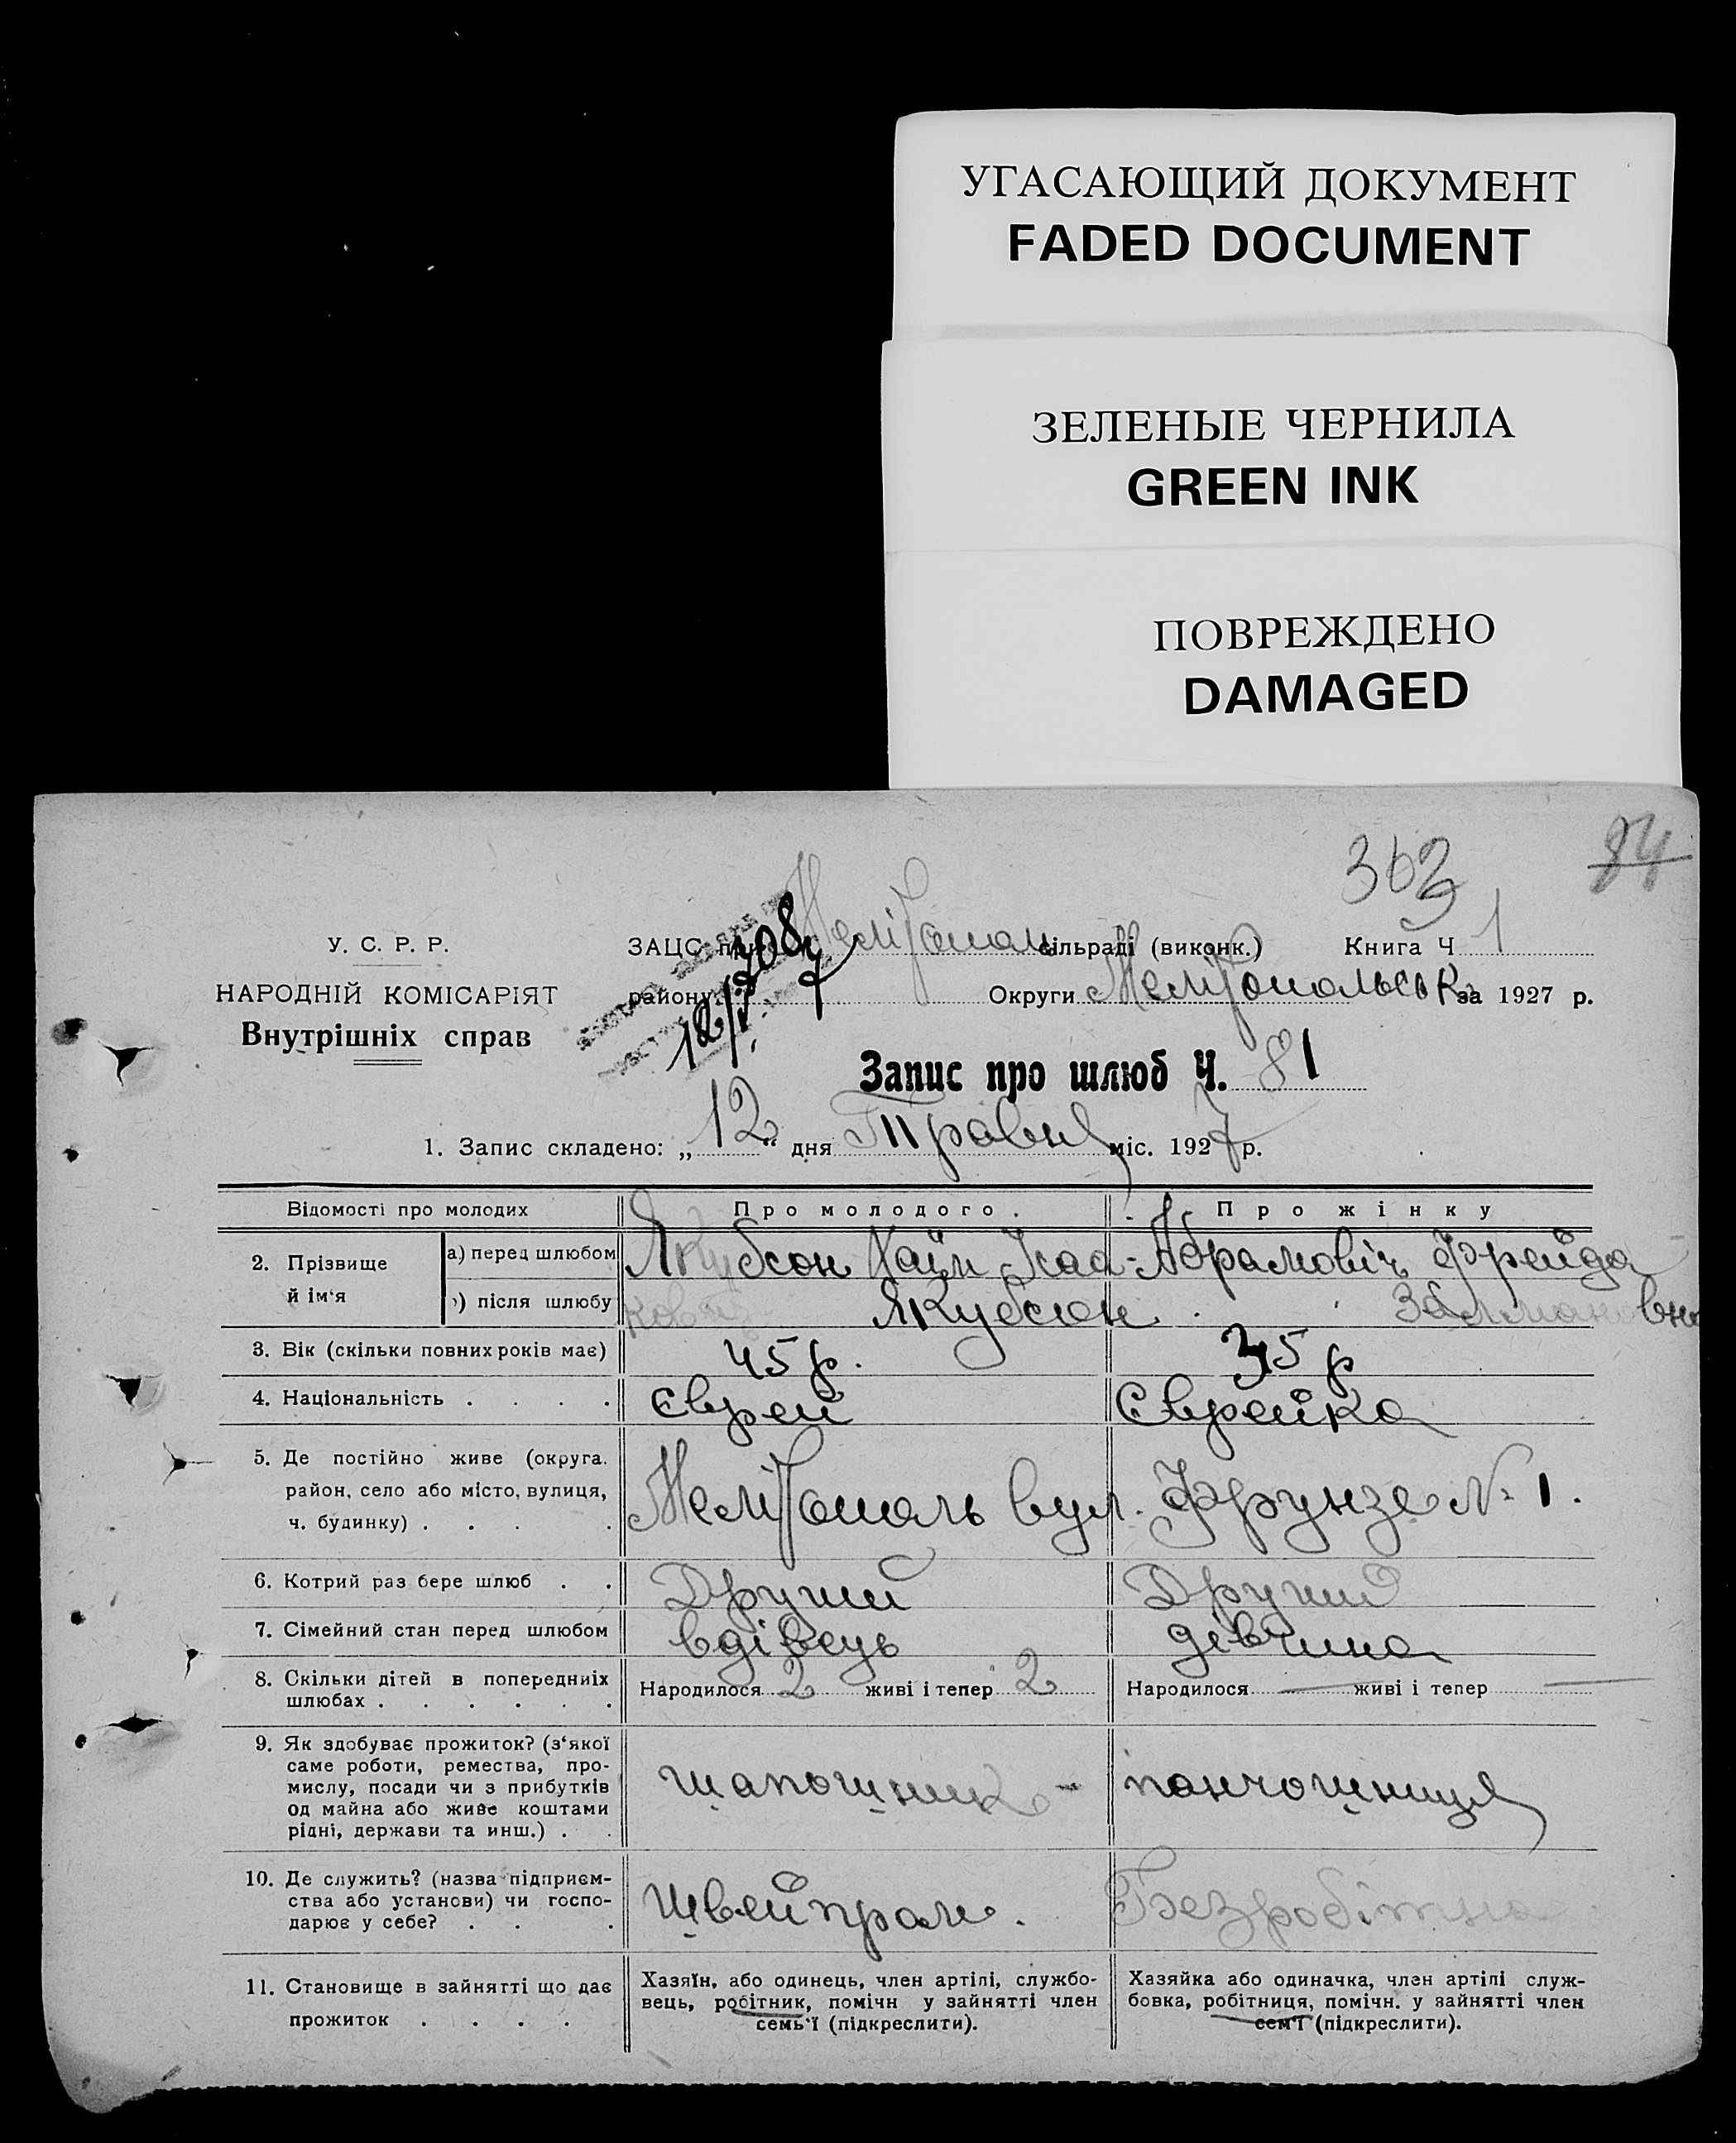 УГАСАЮЩИЙ ДОКУМЕНТ
FADED DOCUMENT
ЗЕЛЕНЫЕ ЧЕРНИЛА
GREEN INK
ПОВРЕЖДЕНО
DAMAGED
84
363
У. С. Р. Р.
НАРОДНІЙ КОМІСАРІЯТ
Внутрішніх справ
ЗАЦС при Мелітополь сільраді (виконк.) Книга Ч 1
району Округи Мелітопольськ за 1927 р.
Запис про шлюб Ч. 81
1. Запис складено: „12“ дня Травня міс. 1927 р.
Відомості про молодих Про молодого. Про жінку
2. Прізвище й ім‘я
а) перед шлюбом Якубсон Хаїм Ісаа- Абрамовіч Фрейда
) після шлюбу ковіч Якубсон Залмановна
3. Вік (скільки повних років має) 45 р. 35 р
4. Національність . . . . Єврей Єврейка
5. Де постійно живе (округа.
район, село або місто, вулиця,
ч. будинку) . . . . Мелітополь вул. Фрунзе № 1.
6. Котрий раз бере шлюб . . Другий Другий
7. Сімейний стан перед шлюбом вдівець дівчина
8. Скільки дітей в попередніх
шлюбах . . . . . . Народилося 2 живі і тепер 2 Народилося — живі і тепер —
9. Як здобуває прожиток? (з‘якої
саме роботи, ремества, про-
мислу, посади чи з прибутків
од майна або живе коштами
рідні, держави та инш.) . . шапошник - панчошниця
10. Де служить? (назва підприєм-
ства або установи) чи госпо-
дарює у себе? . . . Швейпром. Безробітна
11. Становище в зайнятті що дає
прожиток . . . .
Хазяїн, або одинець, член артілі, службо-
вець, робітник, помічн у зайнятті член
семь‘ї (підкреслити).
Хазяйка або одиначка, член артілі служ-
бовка, робітниця, помічн. у зайнятті член
сем‘ї (підкреслити).